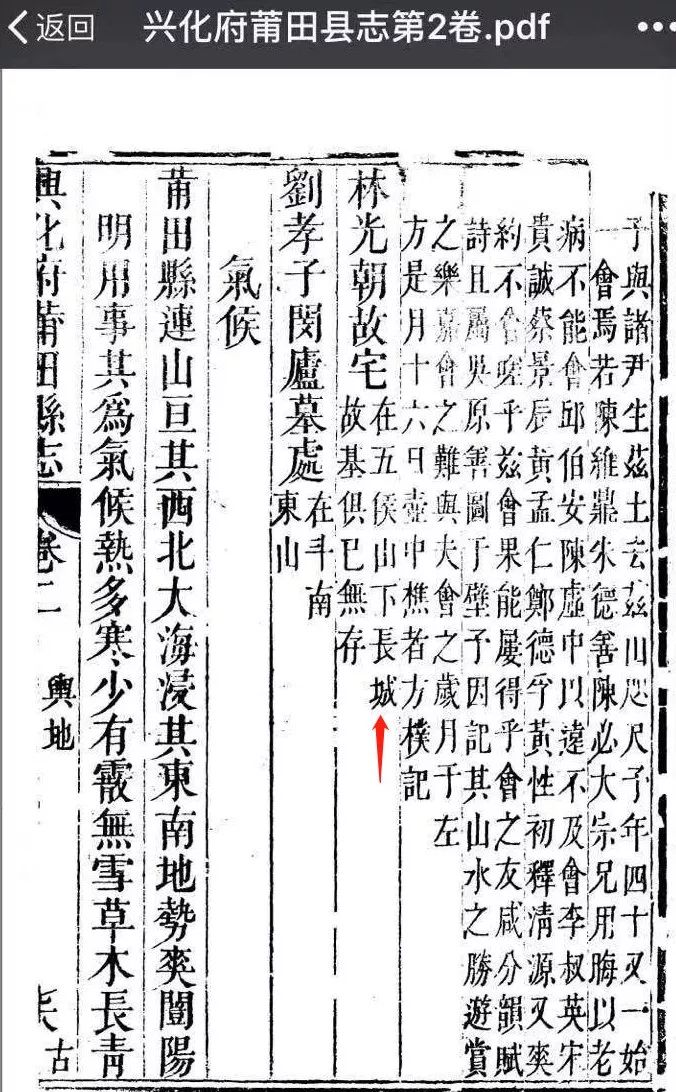 返回
兴化府莆田县志第2卷.pdf
子與諸尹生茲土去茲山咫尺予年四十又一始
一會焉若陳維鼎朱德善陳必大宗兄用晦以老
病不能會邱伯安陳虛中以遠不及會李叔英宋
貴誠蔡景辰黃孟仁鄭德孚黃性初釋清源又爽
約不會嗟乎茲會果能屢得乎會之友咸分韻賦
詩且屬吳原善圖于壁予因記其山水之勝遊賞
之樂嘉會之難與夫會之歲月于左
方是月十六日壺中樵者方樸記
林光朝故宅在五侯山下長城
故基俱已無存
劉孝子閔廬墓處在斗南
東山
氣候
莆田縣連山亘其西北大海浸其東南地勢爽闓陽
明用事其為氣候熱多寒少有霰無雪草木長青
興化府莆田縣志
卷二
輿地
古